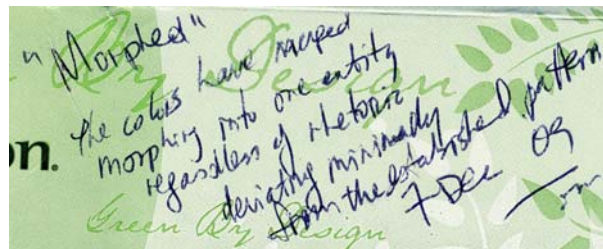 "Morphed"
By Design
the colors have merged
morphing into one entity
on.
regardless of rhetoric
deviating minimally
from the established pattern
7 Dec 09
Green By Design